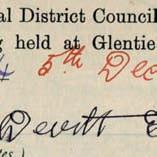 al District Council
g held at Glentie
5th Dec
Devitt